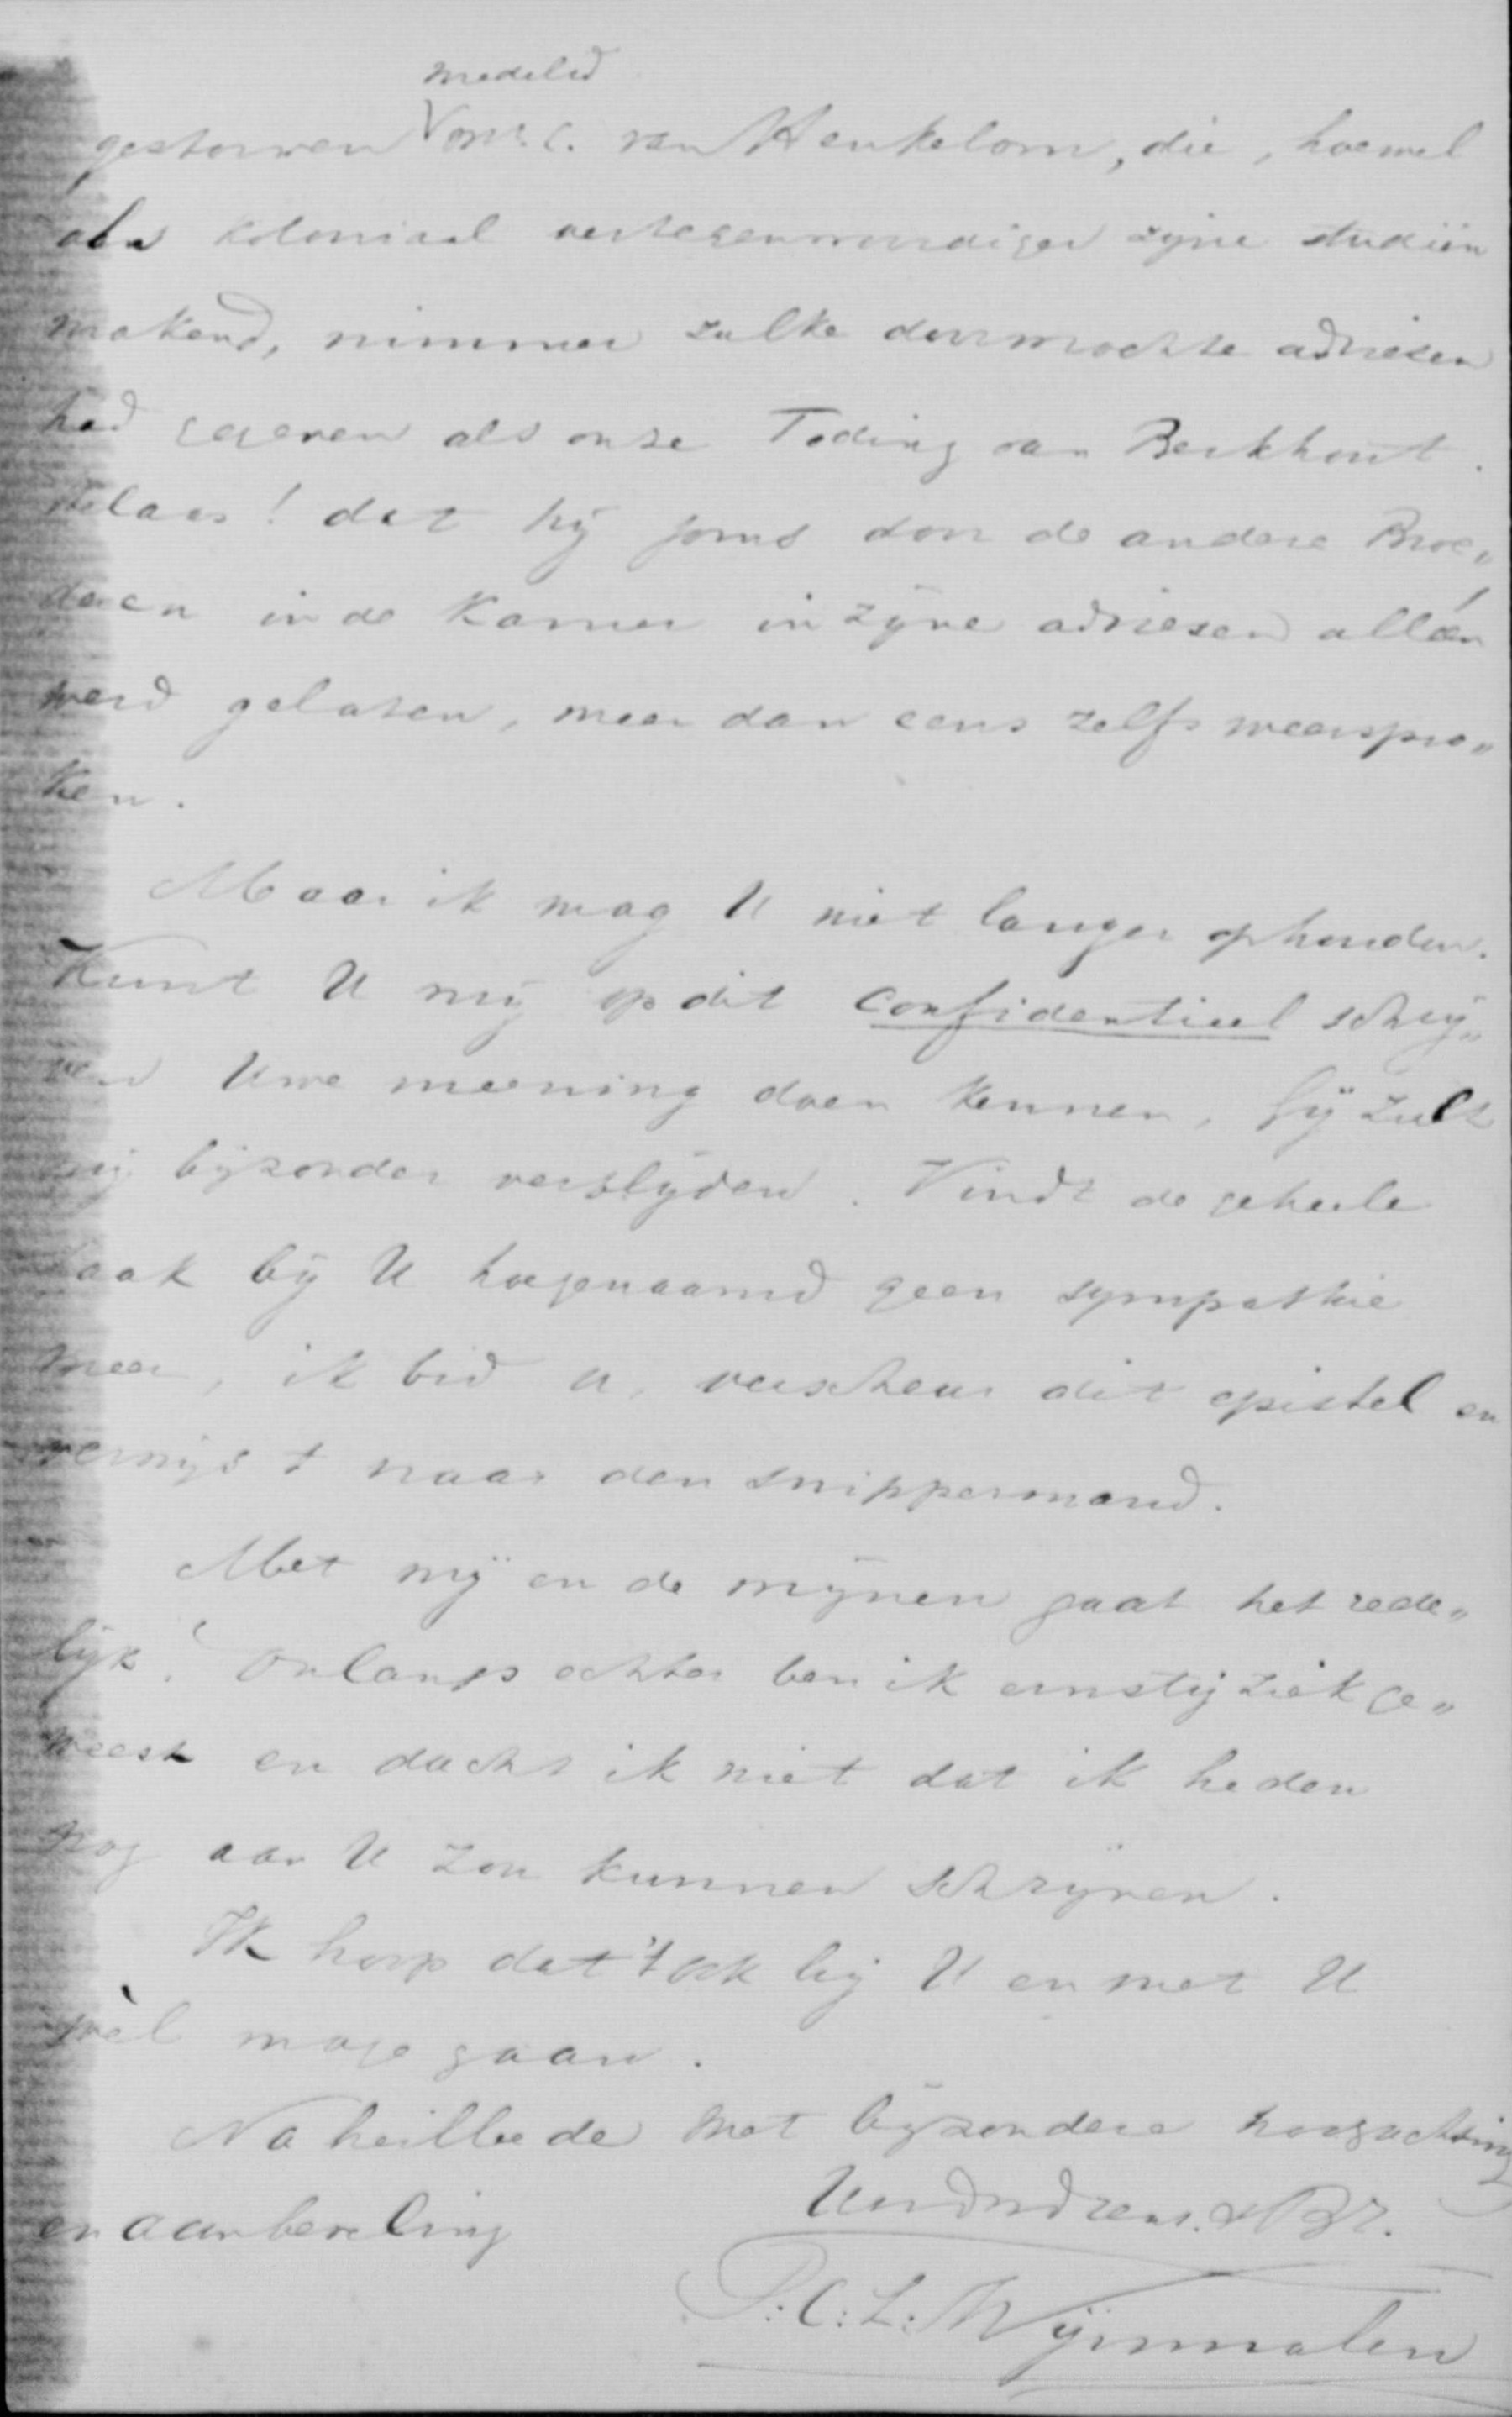 medelid
gestorven V onz. C. van Heukelom, die, hoewel
als koloniaal vertegenwoordiger zijne studiën
makend, nimmer zulke doorwrochte adviesen
had gegeven als onze Teding van Berkhout.
Helaas! dat hij soms door de andere Broe„
deren in de Kamer in zijne adviesen alléén
werd gelaten, meer dan eens zelfs weerspro„
ken.
Maar ik mag U niet langer ophouden.
Kunt U mij op dit confidentieel schrij„
ven Uwe meening doen kennen, Gij zult
mij bijzonder verblijden. Vindt de geheele
zaak bij U hoegenaamd geen sympathie
meer, ik bid U, verscheur dit epistel en
verwijs 't naar den snippermand.
Met mij en de mijnen gaat het rede„
lijk. Onlangs echter ben ik ernstig ziek ge„
weest en dacht ik niet dat ik heden
nog aan U zou kunnen schrijven.
Ik hoop dat 't ook bij U en met U
wèl moge gaan.
Na heilbede met bijzondere hoogachting
en aanbeveling
Uwdwdienr. & Br.
P. C. L. Wijnmalen